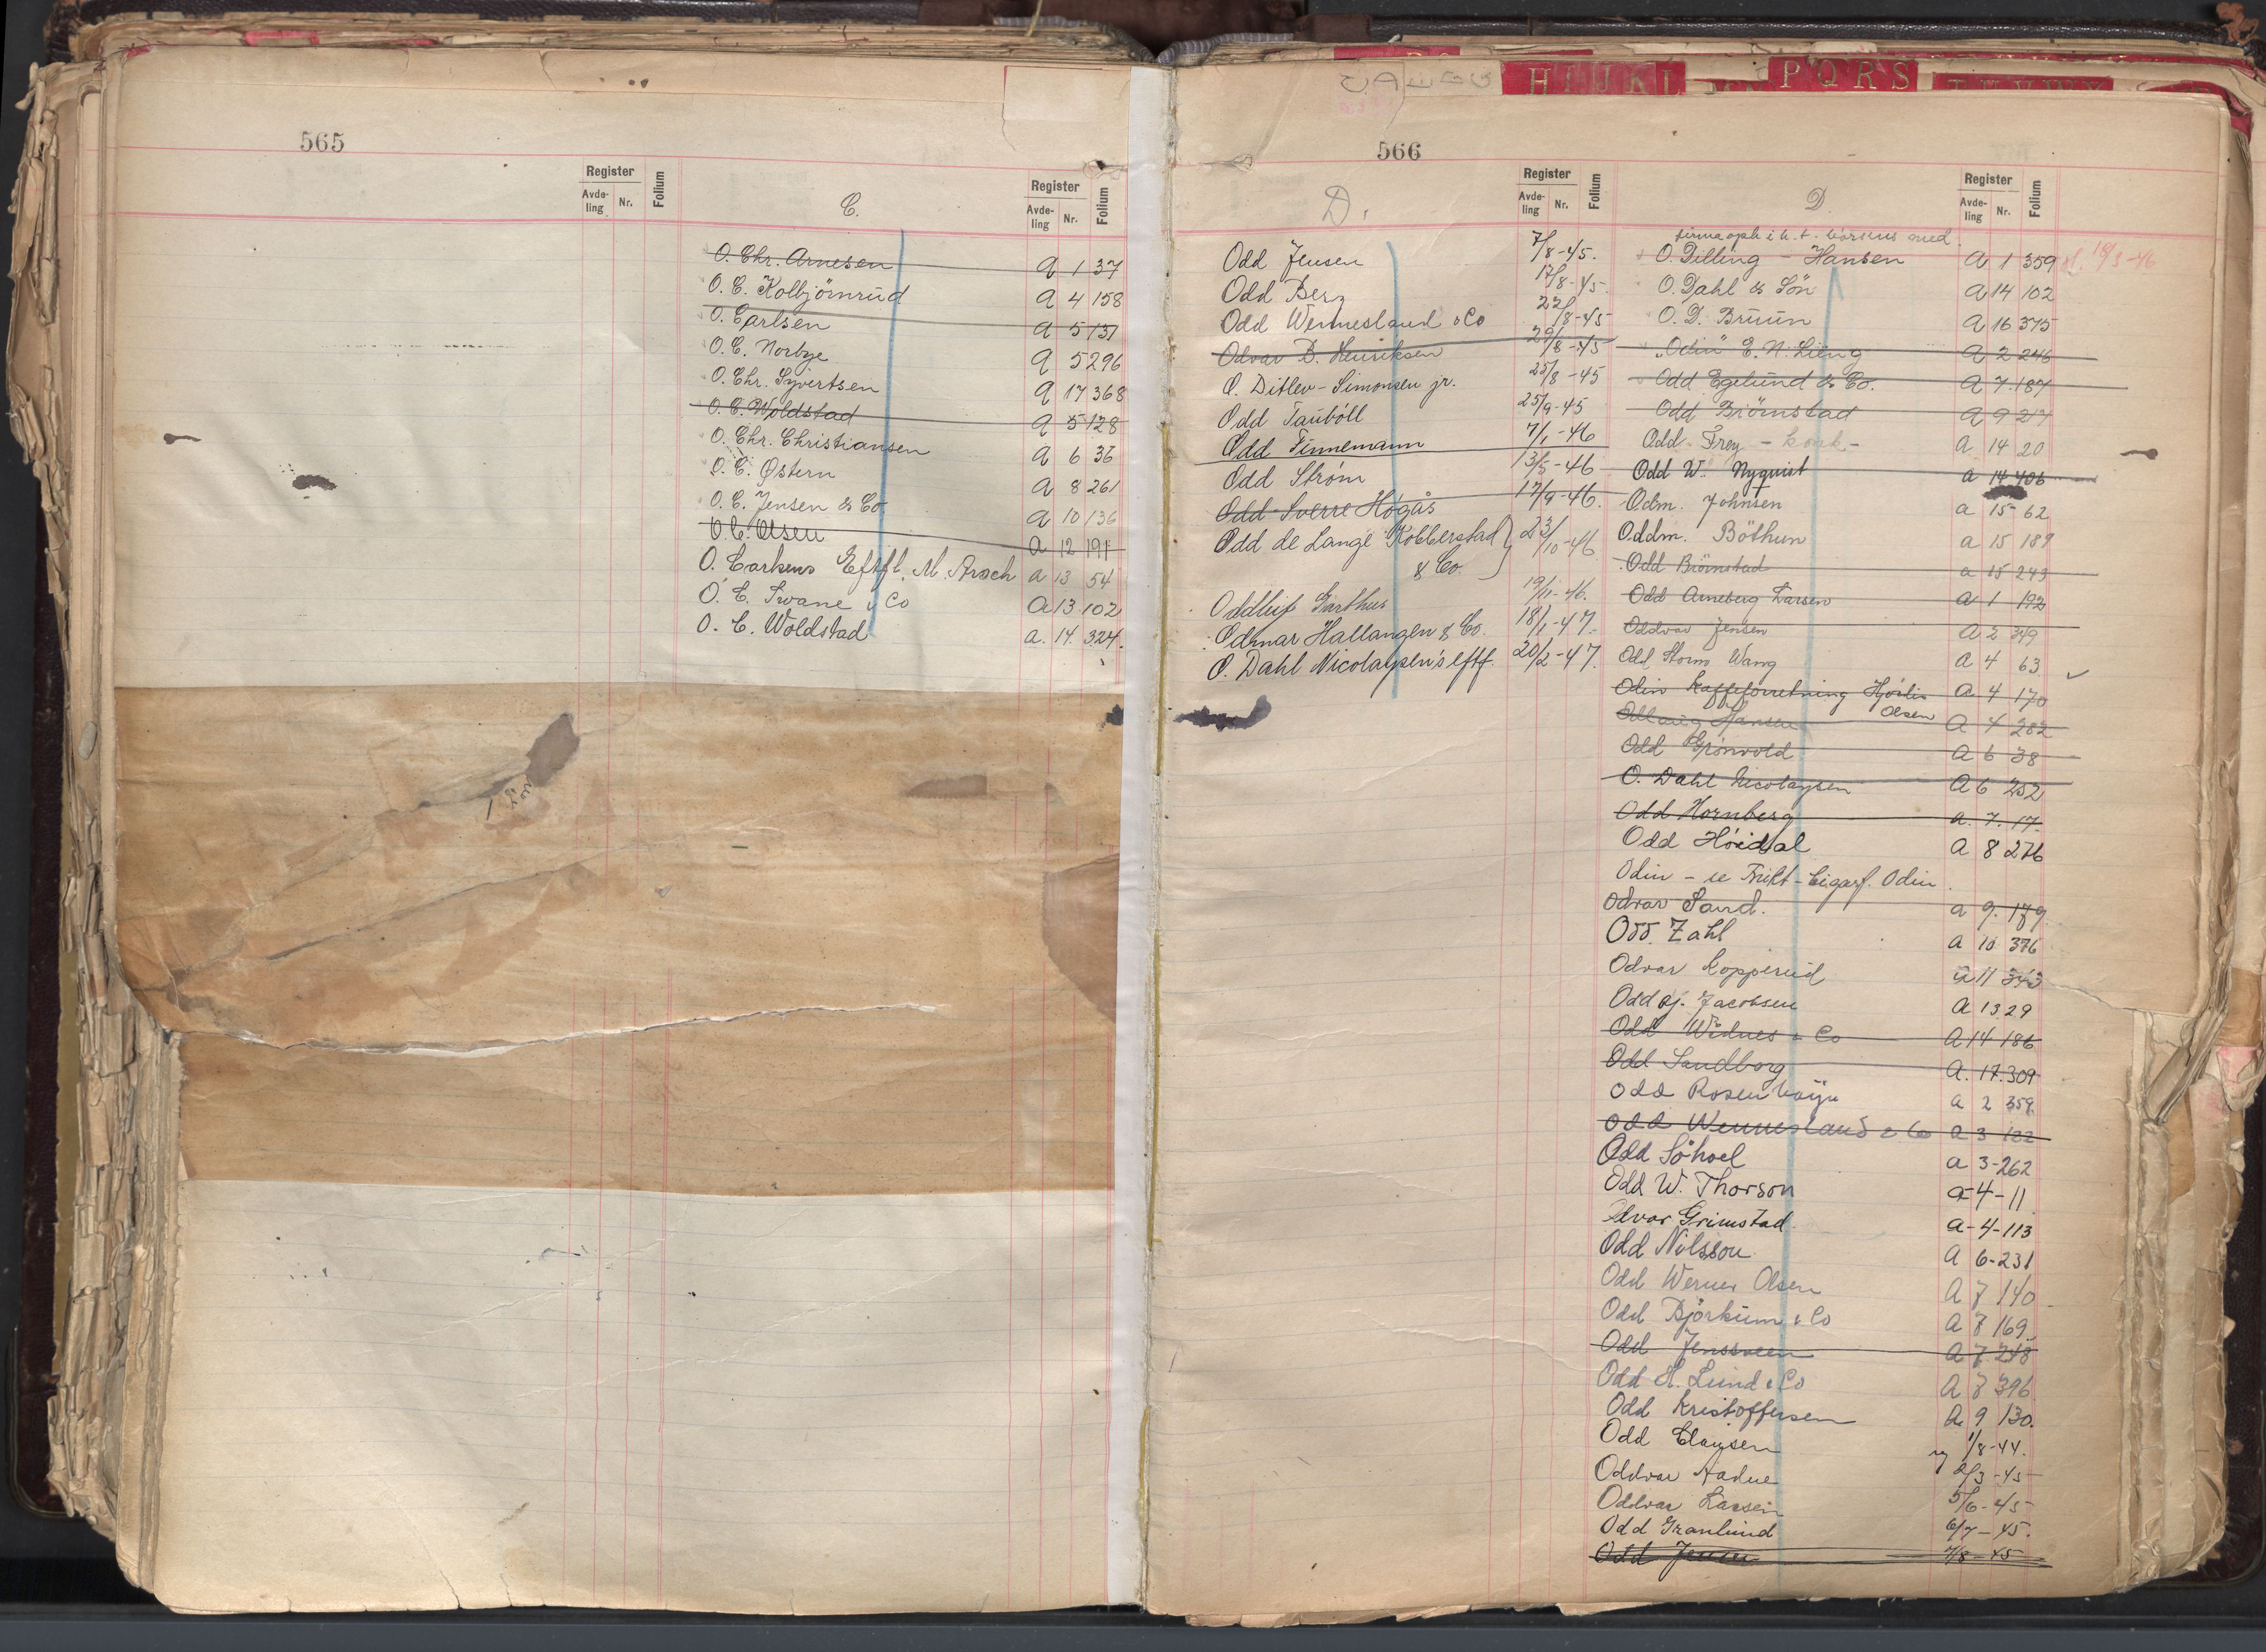 565
Register
Avde-
ling
Nr.
Folium
C.
Register
Avde-
ling
Nr.
Folium
O. Chr. Arnesen A 1 37
O. C. Kolbjörnrud A 4 158
O. Carlsen A 5 131
O. C. Norbye A 5 296
O. Chr. Syvertsen A 17 368
O. C. Woldstad A 5 128
O. Chr. Christiansen A 6 36
O. C. Østern A 8 261
O. C. Jensen & Co A 10 136
O. C. Olsen A 12 191
O. Carlsens Eftfl. M. a 13 54
O. C. Svane & Co a 13 102
O. C. Woldstad a. 14. 324.
H I J K L P Q R S
566
D.
Register
Avde-
ling
Nr.
Folium
Odd Jensen 7/8-45.
Odd Berg 17/8-45.
Odd Wennesland & Co 22/8-45
Odvar B. Henriksen 29/8-45
O. Ditlev-Simonsen jr. 25/8-45
Odd Tauböll 25/9-45
Odd Finnemann 7/1-46
Odd Strøm 13/5-46
Odd Sverre Høgås 17/9-46.
Odd de Lange Kobberstad
& Co. 23/10-46
Oddleif Garthus 19/11-46.
Odmar Hallangen & Co. 18/1-47.
O. Dahl Nicolaysen's eftf. 20/2-47.
D
Register
Avde-
ling
Nr.
Folium
O. Dilling-Hansen A 1 359
O. Dahl & Sön A 14 102
O. D. Bruun A 16 375
"Odin" E. N. Lieng A 2 246
Odd Egelund & Co. A 7 187
Odd Björnstad A 9 27
Odd Frey A 14 20
Odd W. Nyquist a 14 406
Odm. Johnsen a 15 62
Oddm. Böthun a 15 189
Odd Björnstad a 15 243
Odd Arneberg Larsen A 1 192
Oddvar Jensen A 2 349
Odd Storm Wang A 4 63
Odin kaffeforretning Hjördis
Olsen A 4 170
Hansen A 4 282
Odd Grönvold A 6 38
O. Dahl Nicolaysen A 6 252
Odd Hornberg a. 7. 17.
Odd Höidal A 8 276
Odin - se Frukt- Cigarf. Odin.
Odvar Sand. a 9. 179
Odd Zahl A 10 376
Odvar Kopperud a 11 343
Odd Hj. Jacobsen A 13 29
Odd Widnes & Co A 14 186
Odd Sandborg A. 17. 309
Odd Rosenhöjn a 2 359.
Odd Wennesland & Co a 3 122
Odd Söhoel a 3-262
Odd W. Thorson a-4-11
Odvar Grimstad. a-4-113
Odd Nilsson A 6-231
Odd Werner Olsen A 7 140
Odd Bjørkum & Co A 7 169.
Odd Jensveen A 7 248
Odd H. Lund & Co A 7 396
Odd Kristoffersen A 9 130.
Odd Claysen 1/8-44.
Oddvar Aadne 2/3-45
Oddvar Larsen 5/6-45
Odd Granlund 6/7-45.
Odd Jensen 7/8-45